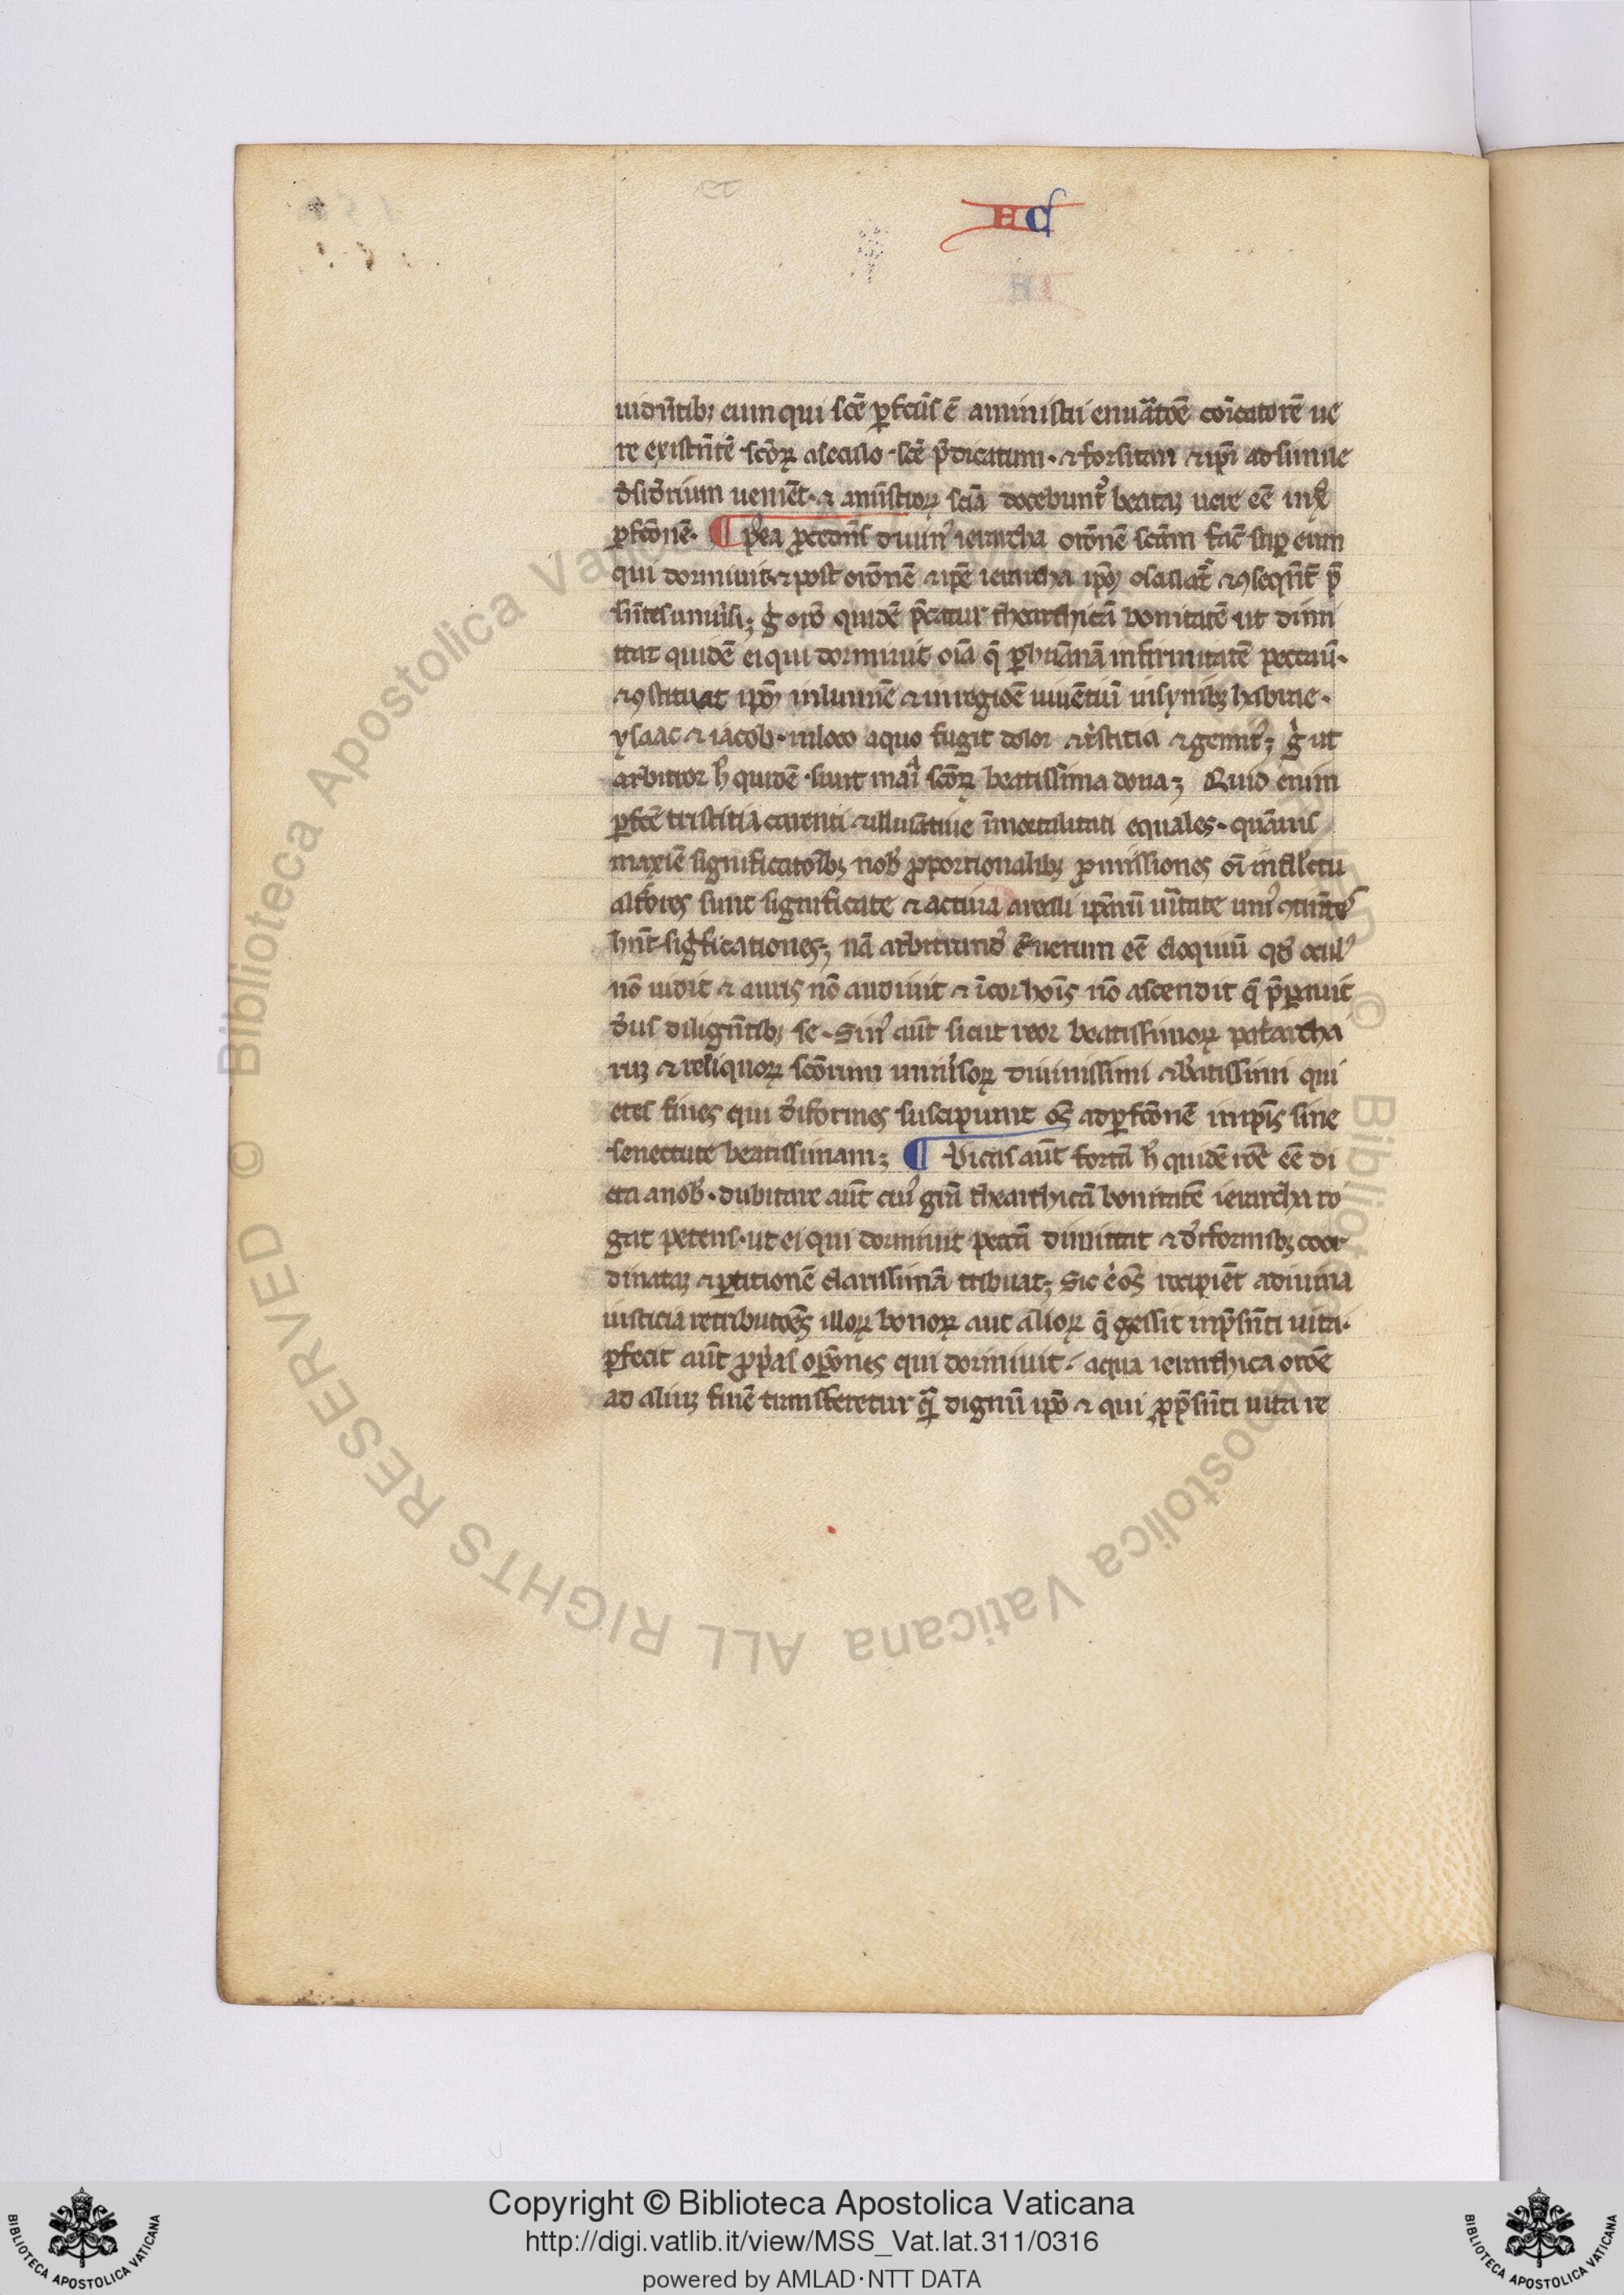 HC
uidn̄tibꝫ eum qui scē ꝑfcūs ē a ministri enūatōe cōicatorē ue
re existn̄tē scōꝝ a seculo scē p̄dicatum · ⁊ forsitan ⁊ ip̄i ad simile
desiderium uenient · ⁊ ministroꝝ sciā docebuntᷣ beataꝫ uere eē in xpo
ꝑfcōnē · ¶ p̄ea ꝓcedēs diuinꝰ ierarcha orōnē scām facit sup eum
qui dormiuit ⁊ post orōnē ⁊ ipē ierarcha ipm osculatᷣ ⁊ ꝯseqn̄tᷣ p̄
sn̄tes uniuersi ; gͥ orō quidē p̄catur thearchicā bonitatē ut dimi
ttat quidē ei qui dormiuit oīa q̄ ꝑ humanā infirmitatē peccauit ·
⁊ ꝯstituat ipm in lumine ⁊ in regiōe uiuentiū in synibꝫ habrae ·
ysaac ⁊ iacob · in loco a quo fugit dolor ⁊ tristitia ⁊ gemitꝰ ; gͥ ut
arbitror h̄ quidē sunt māiᵃ scōꝝ beatissima dona ; Quid enim
ꝑfcē tristitia carenti ⁊ illuīatiue īmortalitati equales · quāuis
maxīe significatoibꝫ nob̄ ꝓportionalibꝫ ꝓmissiones oī intellectu
altiores sunt significate ⁊ actiua a reali ipārum uītate unīꝰ
hn̄t significationes ; nā arbitrandū ē uerum eē eloquiū qd̄ oculꝰ
nō uidit ⁊ auris nō audiuit ⁊ ī cor hoīs nō ascendit q̄ p̄parauit
deus dilign̄tibꝫ se · Sinꝰ aūt sicut reor beatissimoꝝ patriarcha
ruꝫ ⁊ reliquoꝝ scōrum uniuersoꝝ diuinissimi ⁊ beatissimi qui
etes fines qui deiformes suscipiunt oēs ad ꝑfcōnē in ipīs sine
senectute beatissimam ; ¶ Dicas aūt fortā h̄ quidē recte eē di
cta a nob̄ · dubitare aūt cuiꝰ gr̄a thearchicā bonitatē ierarcha ro
gat petens · ut ei qui dormiuit peccata dimittat ⁊ deiformibꝫ coor
dinataꝫ ⁊ ꝑtitionē clarissimā tribuat ; Si c̓ oēs recipient a diuina
iusticia retributōes illoꝝ bonoꝝ aut alioꝝ q̄ gessit in p̄sn̄ti uita ·
ꝑfecit aūt ꝓprias oꝑōnes qui dormiuit · a qua ierarchica orōe
ad aliuꝫ finē transferetur q̄ dignū ipō ⁊ qui ꝓ p̄sn̄ti uita re
Copyright © Biblioteca Apostolica Vaticana
http://digi.vatlib.it/view/MSS_Vat.lat.311/0316
powered by AMLAD·NTT DATA
BIBLIOTECA APOSTOLICA VATICANA
BIBLIOTECA APOSTOLICA VATICANA
© Biblioteca Apostolica Vaticana ALL RIGHTS RESERVED